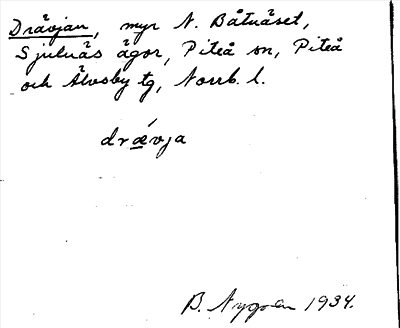 Dråvjan, myr N. Båtnäset,
Sjulnäs ägor, Piteå sn, Piteå
och Älvsby tg, Norrb. l.
drǽvja
B. Nygren 1934.